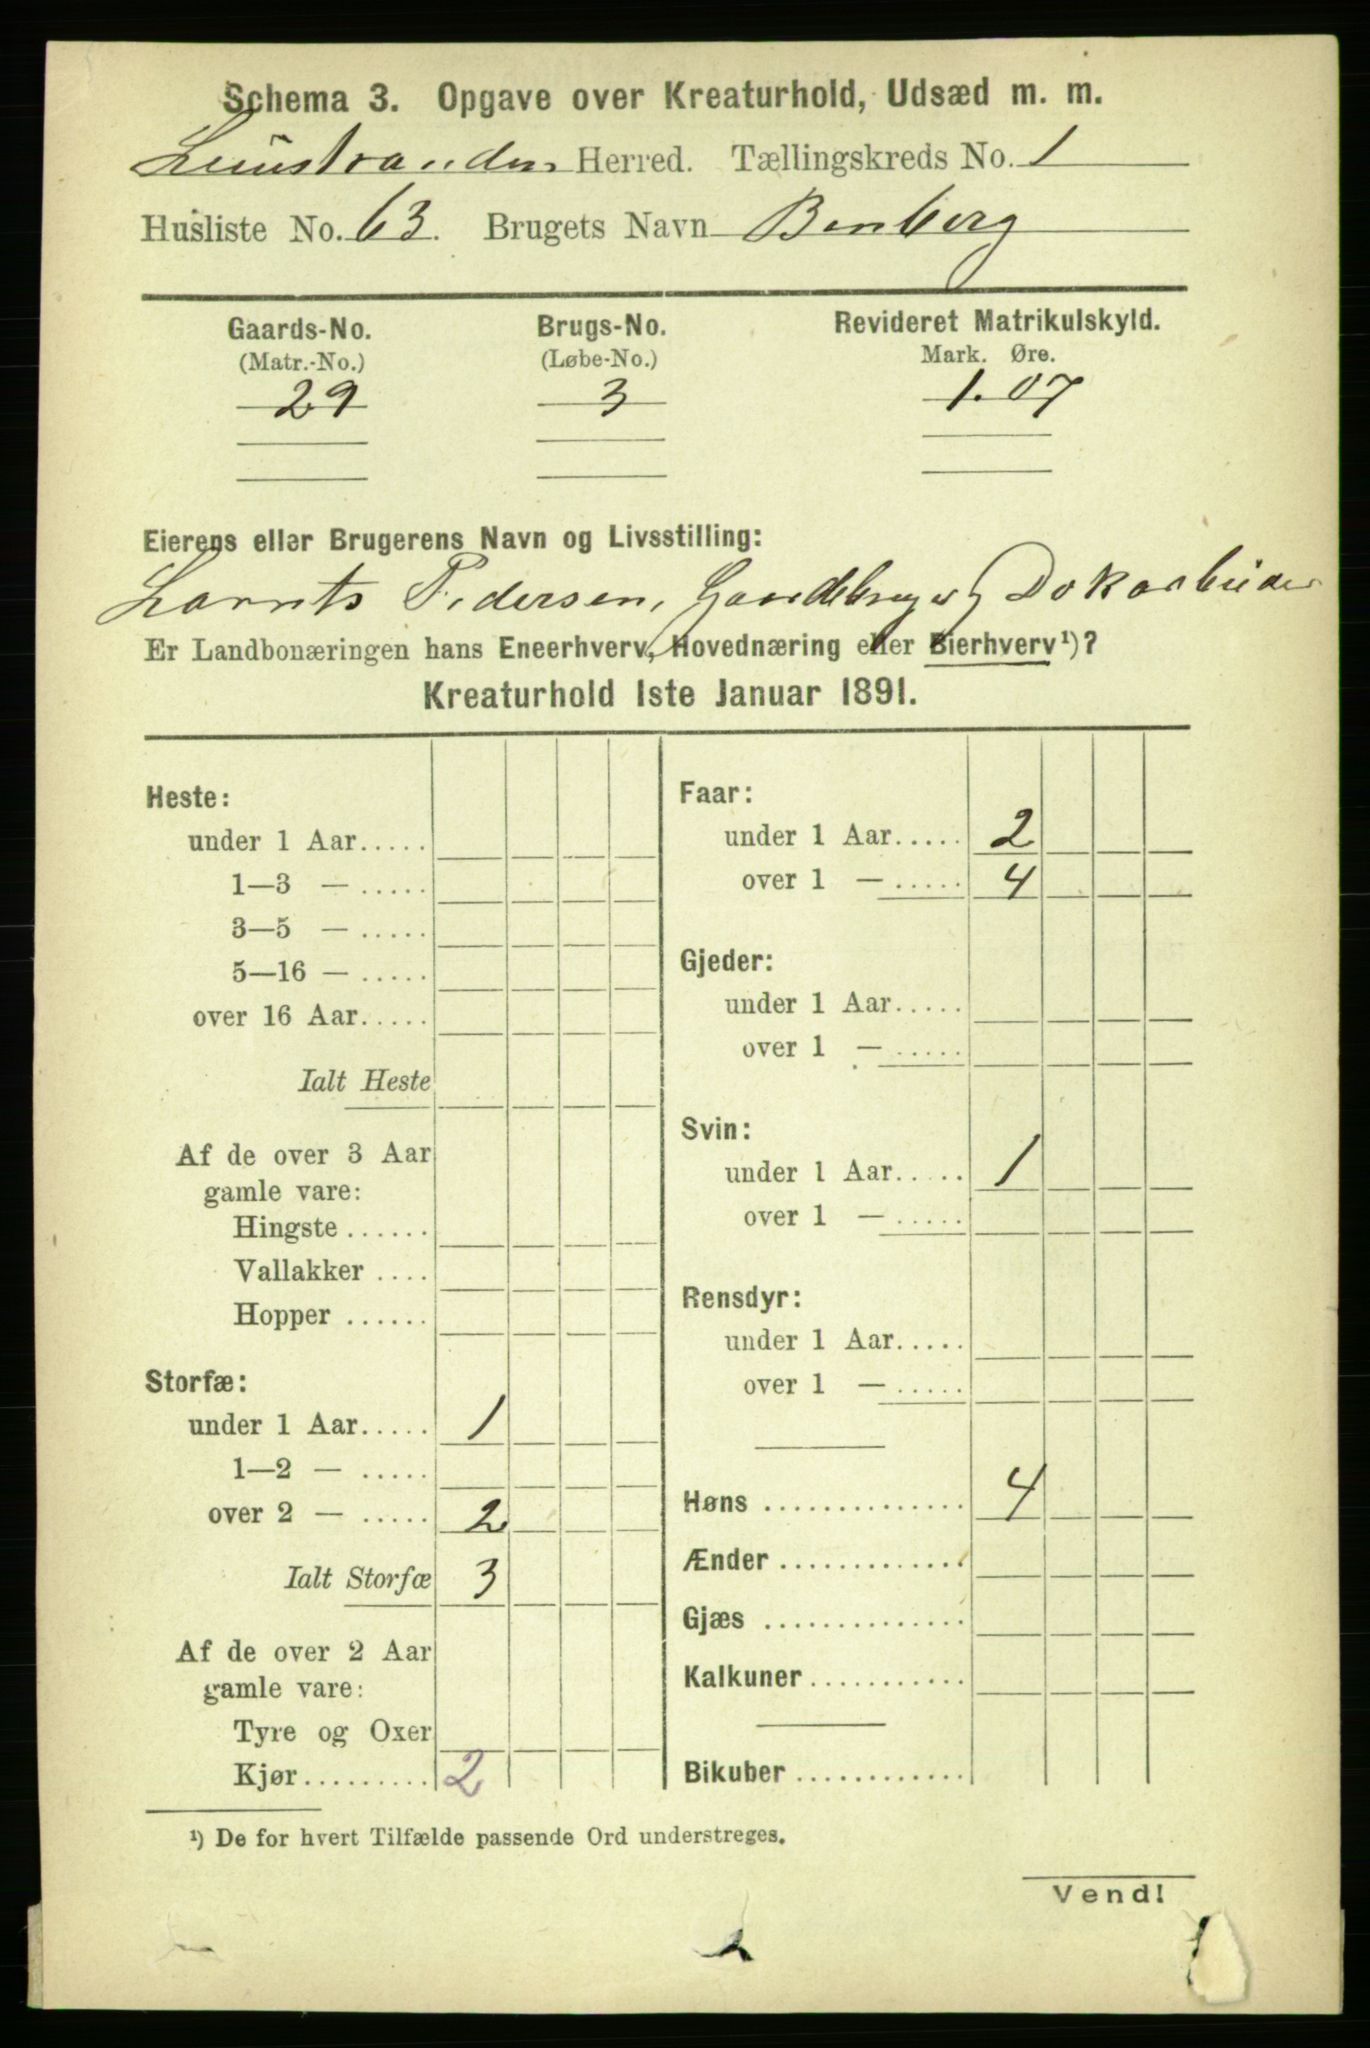 Schema 3. Opgave over Kreaturhold, Udsæd m. m.
Herred. Tællingskreds No. 1
Husliste No. 63. Brugets Navn Benberg
Gaards-No. Brugs-No. Revideret Matrikulskyld.
(Matr.-No.) (Løbe-No.) Mark. Øre.
29 3 1.07
Eierens eller Brugerens Navn og Livsstilling:
Lornts Pedersen, Gaardbruger Dokarbeider
Er Landbonæringen hans Eneerhverv, Hovednæring eller Bierhverv¹)?
Kreaturhold 1ste Januar 1891.
Heste:
under 1 Aar.....
1—3 — .....
3—5 — .....
5—16 — .....
over 16 Aar.....
Ialt Heste
Af de over 3 Aar
gamle vare:
Hingste ......
Vallakker ....
Hopper ......
Storfæ:
under 1 Aar..... 1
1—2 — .....
over 2 — ..... 2
Ialt Storfæ 3
Af de over 2 Aar
gamle vare:
Tyre og Oxer
Kjør......... 2
Faar:
under 1 Aar..... 2
over 1 — ..... 4
Gjeder:
under 1 Aar.....
over 1 — .....
Svin:
under 1 Aar..... 1
over 1 — .....
Rensdyr:
under 1 Aar.....
over 1 — .....
Høns .............. 4
Ænder .............
Gjæs ..............
Kalkuner...........
Bikuber ............
¹) De for hvert Tilfælde passende Ord understreges.
Vend!